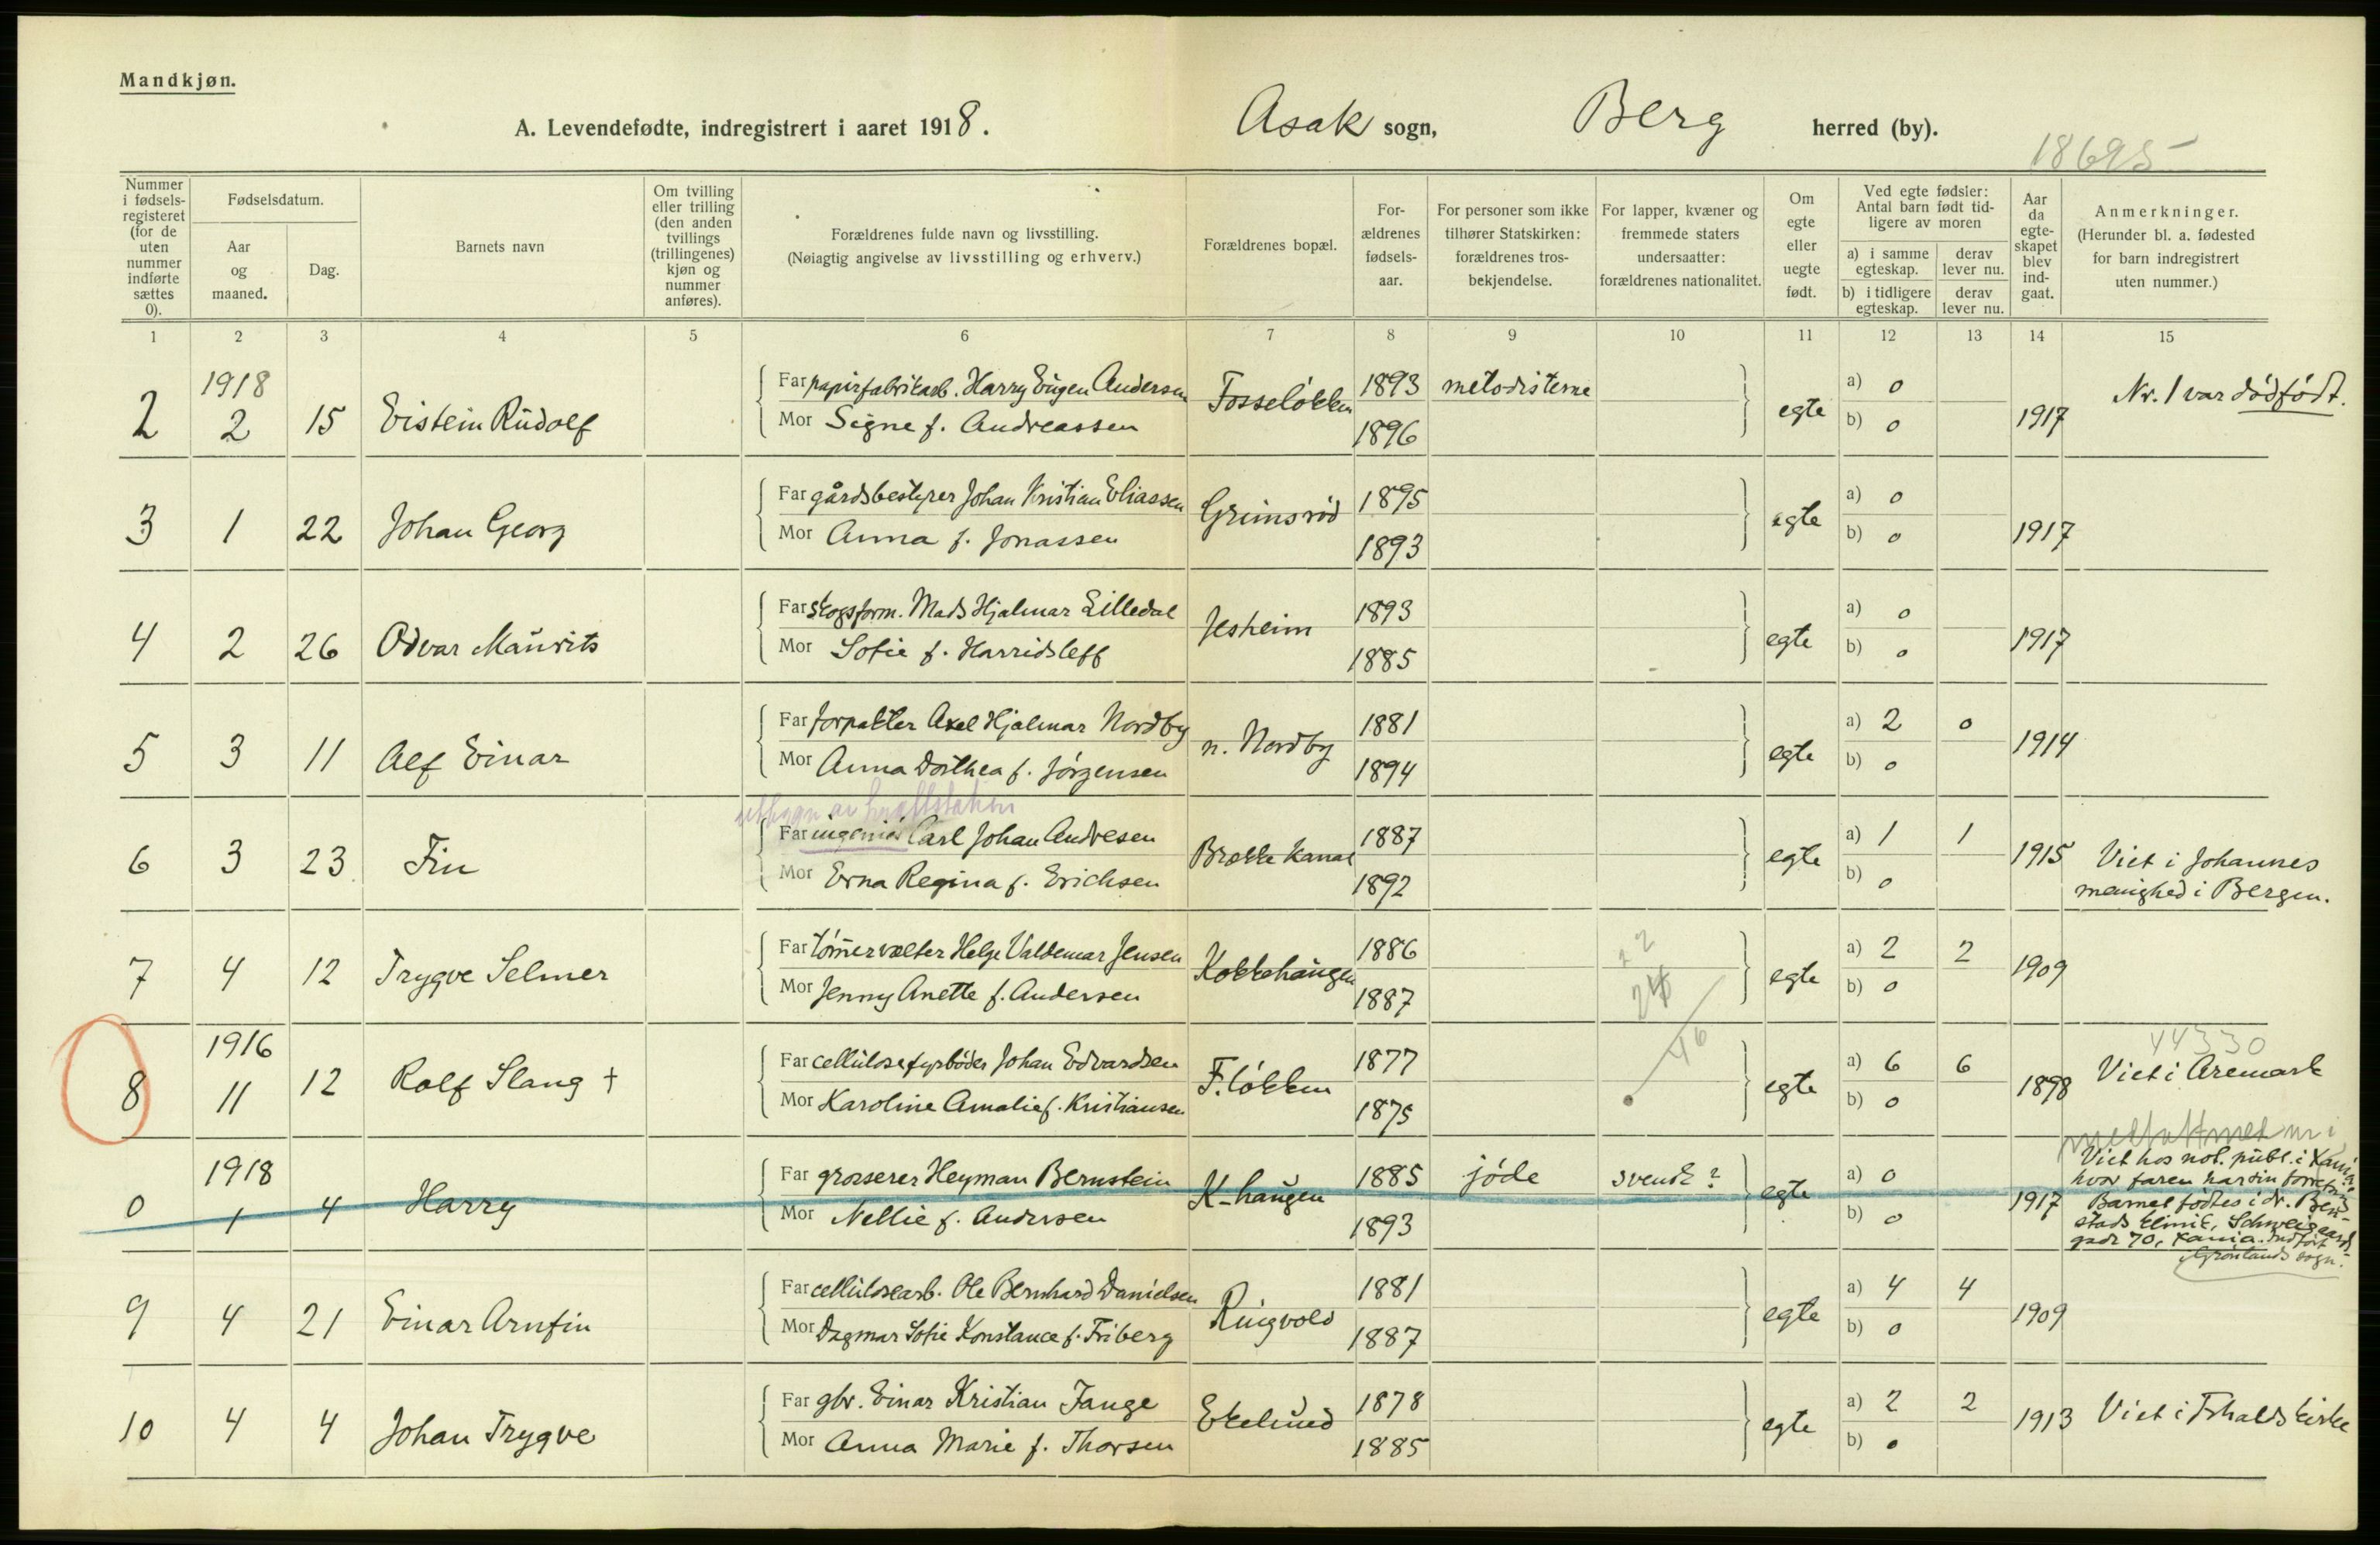 Mandkjøn.
A. Levendefødte, indregistrert i aaret 1918. Asak sogn, Berg herred (by).
18695
Nummer i fødsels-registeret (for de uten nummer indførte sættes 0).
Fødselsdatum.
Aar og maaned.
Dag.
Barnets navn
Om tvilling eller trilling (den anden tvillings (trillingenes) kjøn og nummer anføres).
Forældrenes fulde navn og livsstilling.
(Nøiagtig angivelse av livsstilling og erhverv.)
Forældrenes bopæl.
For-ældrenes fødsels-aar.
For personer som ikke tilhører Statskirken: forældrenes tros-bekjendelse.
For lapper, kvæner og fremmede staters undersaatter: forældrenes nationalitet.
Om egte eller uegte født.
Ved egte fødsler: Antal barn født tid-ligere av moren
a) i samme egteskap. derav lever nu.
b) i tidligere egteskap. derav lever nu.
Aar da egte-skapet blev ind-gaat.
Anmerkninger.
(Herunder bl. a. fødested for barn indregistrert uten nummer.)
1 2 3 4 5 6 7 8 9 10 11 12 13 14 15
1918
2 2 15 Eistein Rudolf
Far papirfabrikarb. Harry Eugen Andersen Fosseløkken 1893 metodisterne
Mor Signe f. Andreassen 1896
egte a) 0 b) 0 1917 Nr. 1 var dødfødt.
3 1 22 Johan Georg
Far gårdsbestyrer Johan Kristian Eliassen Grimsrød 1895
Mor Anna f. Jonassen 1893
egte a) 0 b) 0 1917
4 2 26 Odvar Maurits
Far skogsform. Mads Hjalmar Lilledal Jesheim 1893
Mor Sofie f. Harridsleff 1885
egte a) 0 b) 0 1917
5 3 11 Alf Einar
Far forpakter Axel Hjalmar Nordby n. Nordby 1881
Mor Anna Dorthea f. Jørgensen 1894
egte a) 2 0 b) 0 1914
6 3 23 Fin
Far ingeniør Carl Johan Andresen Brække kanal 1887
Mor Erna Regina f. Erichsen 1892
egte a) 1 1 b) 0 1915 Viet i Johannes
menighed i Bergen.
7 4 12 Trygve Selmer
Far tømmervælter Helge Valdemar Jensen Kokkehaugen 1886
Mor Jenny Anette f. Andersen 1887
22
egte a) 2 2 b) 0 1909
1916
8 11 12 Rolf Slang †
Far cellulosefyrbøder Johan Edvardsen F.løkken 1877
Mor Karoline Amalie f. Kristiansen 1875
46
egte a) 6 6 b) 0 1898
44330
Viet i Aremark
1918
0 1 4 Harry
Far grosserer Heyman Bernstein K-haugen 1885 jøde svensk?
Mor Nellie f. Andersen 1893
egte a) 0 b) 0 1917
Viet hos not. publ. i Kania
hvor faren har sin forretn.
Barnet fødtes i dr.
stads klinik, Schweigaards
gade 70, Kania. Indført
Grønlands sogn.
9 4 21 Einar Arnfin
Far cellulosearb. Ole Bernhard Danielsen Ringvold 1881
Mor Dagmar Sofie Konstance f. Friberg 1887
egte a) 4 4 b) 0 1909
10 4 4 Johan Trygve
Far gbr. Einar Kristian Fange Ekelund 1878
Mor Anna Marie f. Thorsen 1885
egte a) 2 2 b) 0 1913 Viet i Fhalds kirke